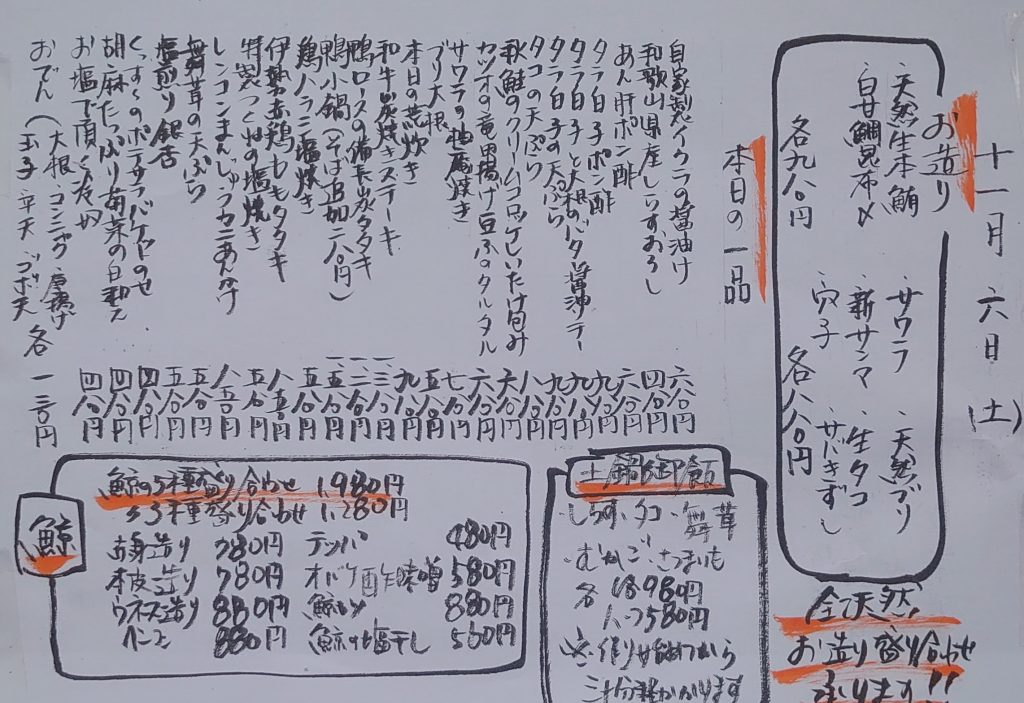 十一月 六日(土)
お造り
・天然生本鮪
・白甘鯛昆布〆
各九八〇円
・サワラ ・天然ブリ
・新サンマ ・生タコ
・穴子 ・サバきずし
各八八〇円
全て天然
お造り盛り合わせ
承ります!!
本日の一品
自家製イクラの醤油け 六八〇円
和歌山県産しらすおろし 四八〇円
あん肝ポン酢 六八〇円
タラ白子ポン酢 九八〇円
タラ白子と大根のバター醤油ソテー
タラ白子の天ぷら
タコの天ぷら 八八〇円
秋鮭のクリームコロッケしいたけ包み 六八〇円
カツオの竜田揚げ豆ふのタルタル 六八〇円
サワラの柚庵焼き 七八〇円
ブリ大根 五八〇円
本日の荒炊き 九八〇円
和牛炭焼きステーキ
鴨ロースの備長炭タタキ
鴨小鍋(そば追加二八〇円)
鶏ハラミ塩焼き 五八〇円
伊勢赤鶏ももタタキ 八八〇円
特製つくねの塩焼き 五八〇円
レンコンまんじゅうカニあんかけ
舞茸の天ぷら 五八〇円
塩煎り銀杏 五八〇円
ポテサラバケットのせ 四八〇円
胡麻たっぷり菊菜の白和え 四八〇円
お塩で頂く 四八〇円
おでん(大根・コンニャク・厚揚げ
玉子・平天・ゴボ天 各一三〇円
土鍋御飯
しらす、タコ、舞茸
むかご、さつまいも
各 1.5合 980円
1合 580円
※作り始めてから
三十分程かかります
鯨
鯨の5種盛り合わせ 1,980円
〃3種盛り合わせ 1,280円
赤身造り 780円
本皮造り 780円
ウネス造り 880円
ベーコン 880円
テッパ 480円
オバケ酢味噌 580円
鯨カツ 880円
鯨の塩干し 560円